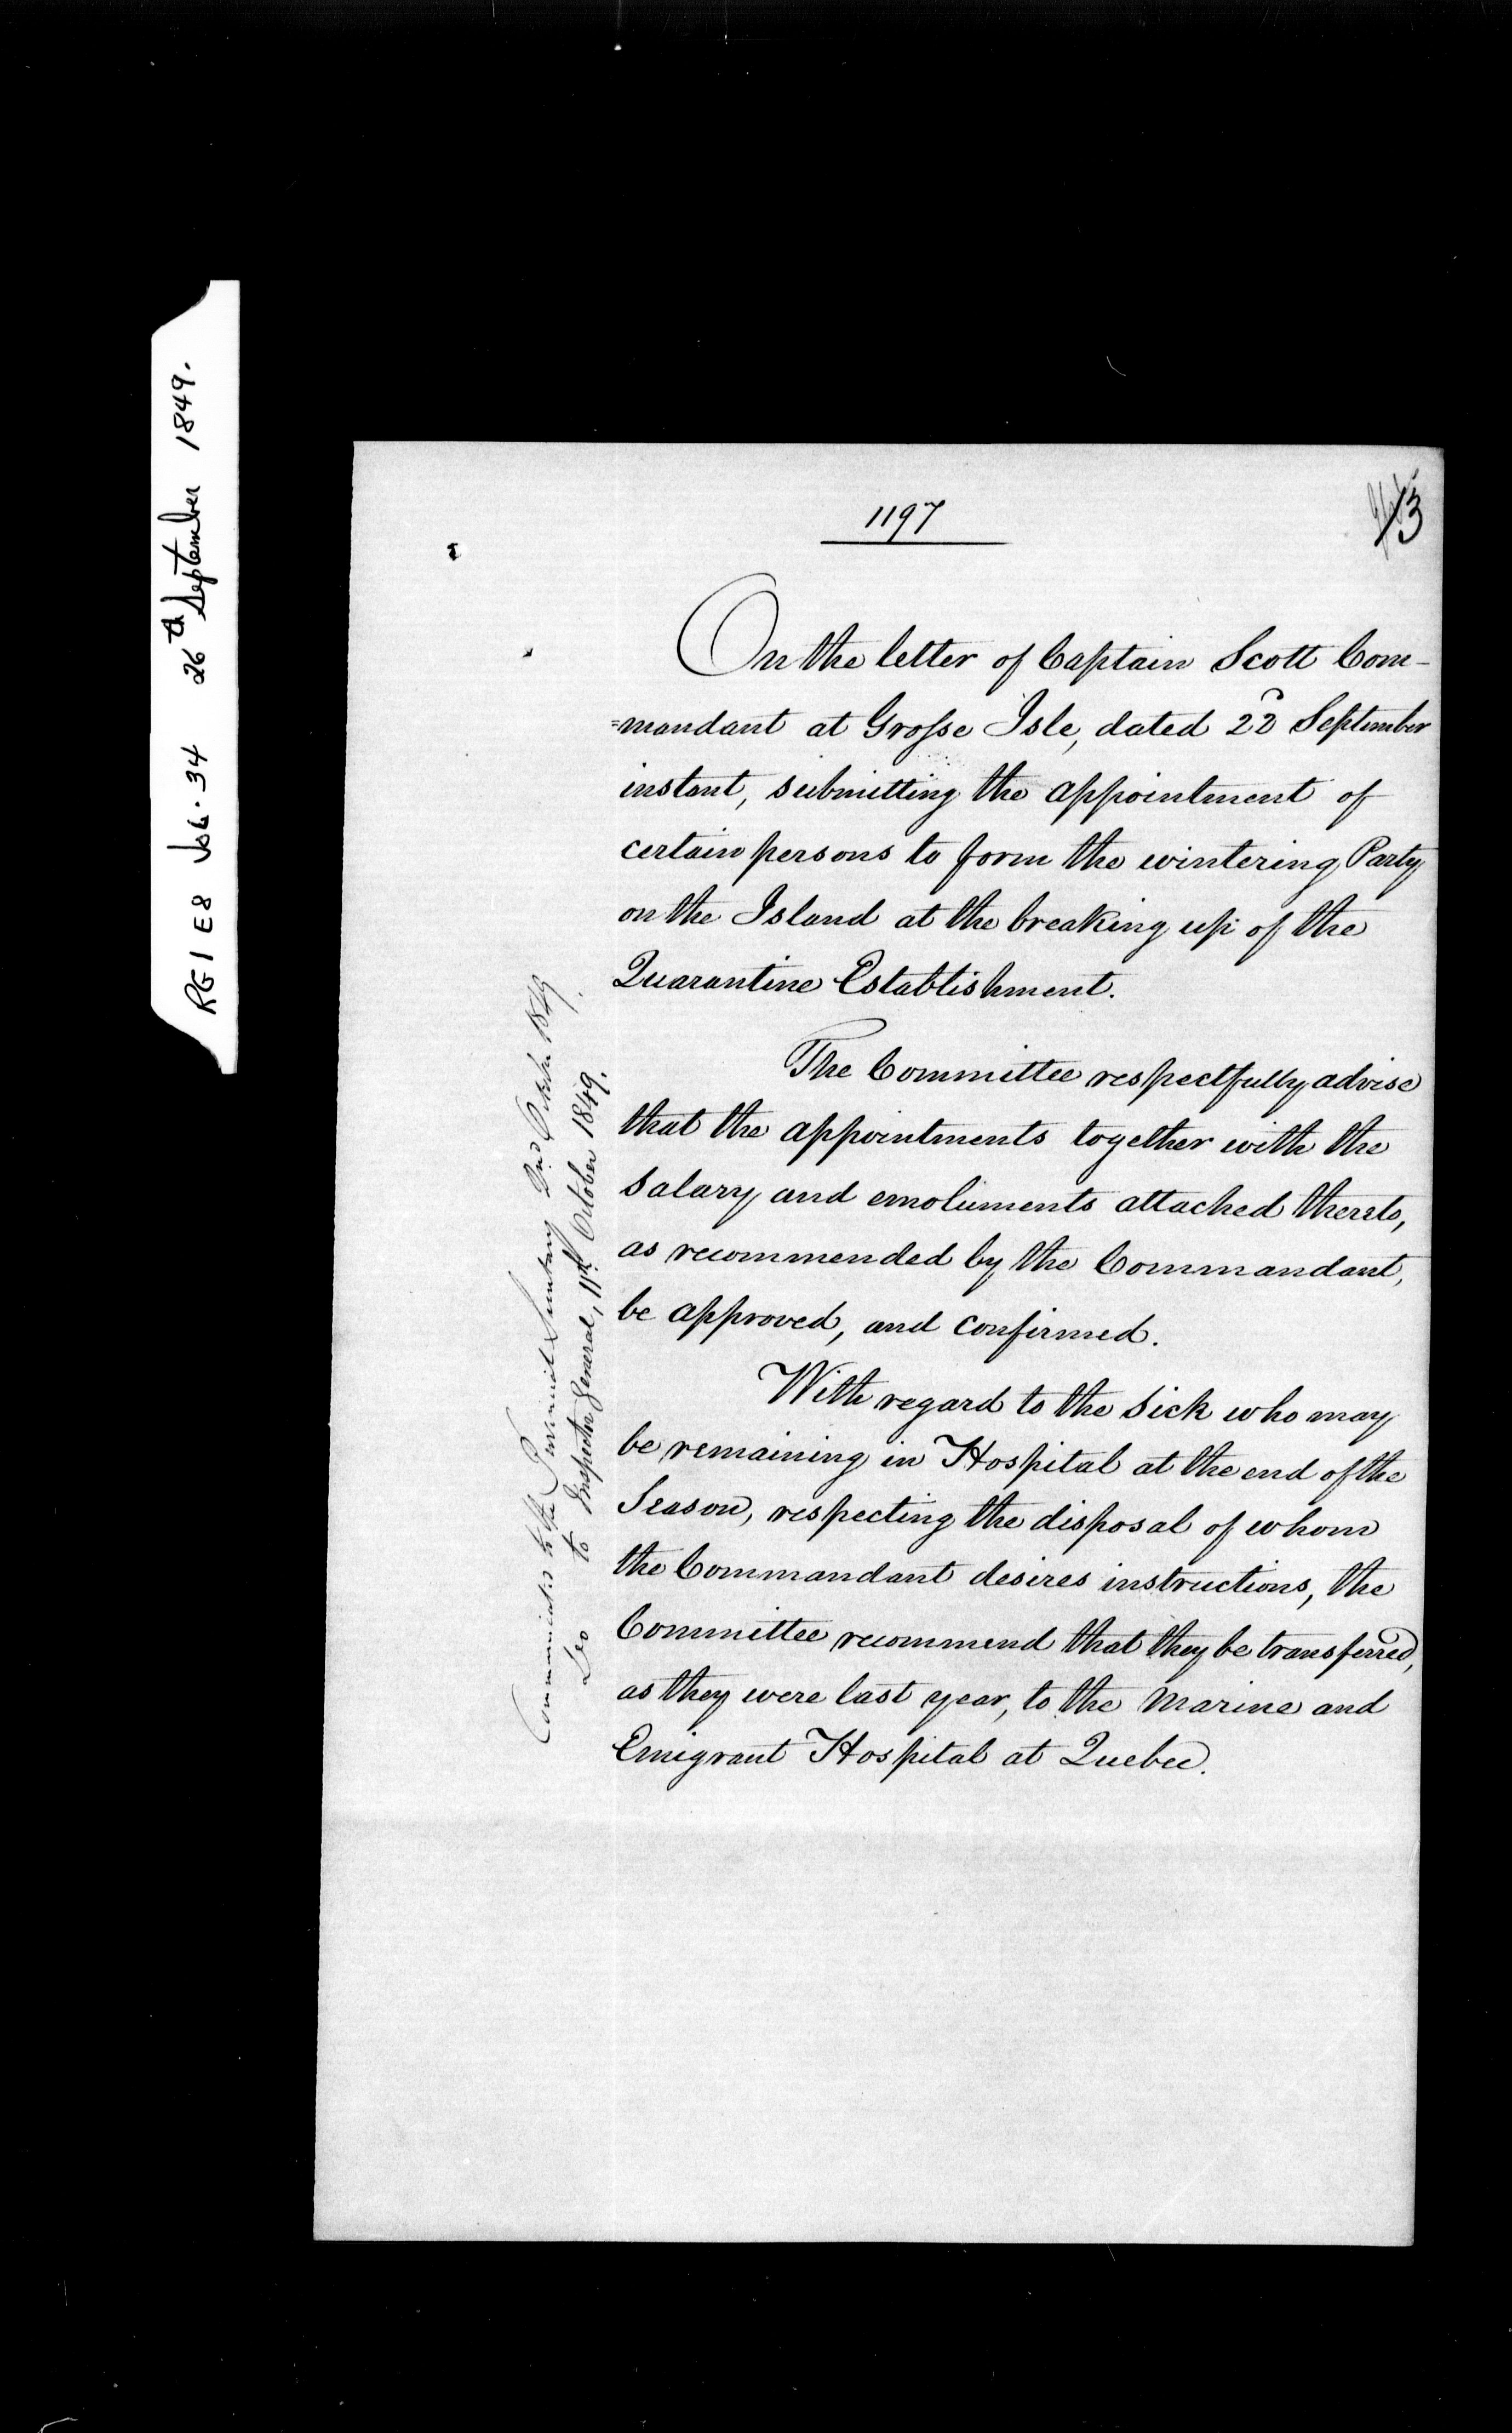 RG1 E8 Vol. 34 26th September 1849.
1197
3
On the letter of Captain Scott Com-
=mandant at Grosse Isle, dated 22d September
instant, submitting the appointment of
certain persons to form the wintering Party
on the Island at the breaking up of the
Quarantine Establishment.
The Committee respectfully advise
that the appointments together with the
salary and emoluments attached thereto,
as recommended by the Commandant,
be approved, and confirmed.
With regard to the sick who may
be remaining in Hospital at the end of the
Season, respecting the disposal of whom
the Commandant desires instructions, the
Committee recommend that they be transferred,
as they were last year, to the Marine and
Emigrant Hospital at Quebec.
Communicated to the Provincial Secretary 2nd October 1849.
Do to Inspector General, 11th October 1849.